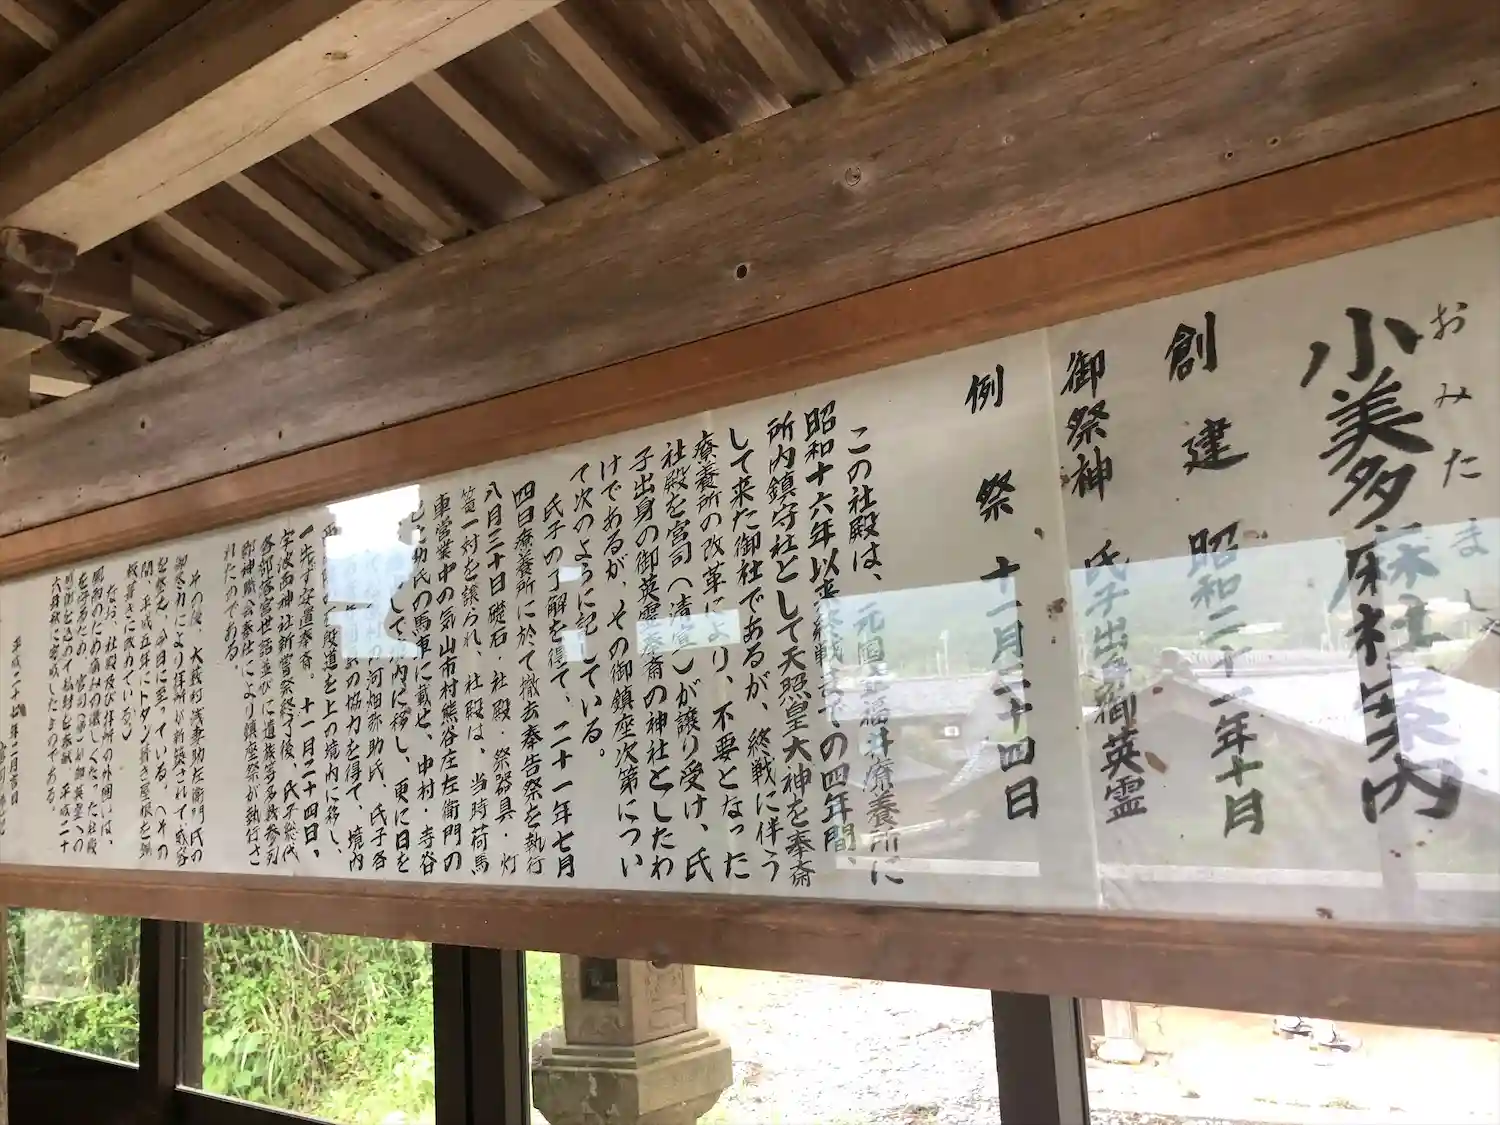 おみたましゃ
小美多麻社案内
創建 昭和二十二年十月
御祭神 氏子出身御英霊
例祭 十一月二十四日
この社殿は、元国立福井療養所に
昭和十六年以来終戦までの四年間、
所内鎮守社として天照皇大神を奉斎
して来た御社であるが、終戦に伴う
療養所の改革により、不要となった
社殿を宮司(清室)が譲り受け、氏
子出身の御英霊奉斎の神社としたわ
けであるが、その御鎮座次第につい
て次のように記している。
氏子の了解を得て、二十一年七月
四日療養所に於て撤去奉告祭を執行
八月三十日礎石・社殿・祭器具・灯
篭一対を譲られ、社殿は、当時荷馬
車営業中の気山市村熊谷庄左衛門の
氏の馬車に載せ、中村・寺谷
して 内に移し、更に日を
河相弥助氏、氏子各
の協力を得て、境内
殿道を上の境内に移し、
一先ず安置奉斎。十一月二十四日、
宇波西神社新嘗祭終了後、氏子総代
各部落宮世話並びに遺族多数参列
郡神職会奉仕により鎮座祭が執行さ
れたのである。
その後、大薮村浅妻助左衛門氏の
御尽力により拝所が新築されて威容
を整え、今日に至っている。(その
間、平成五年にトタン葺き屋根を銅
板葺きに改めている。)
なお、社殿及び拝所の外囲いは、